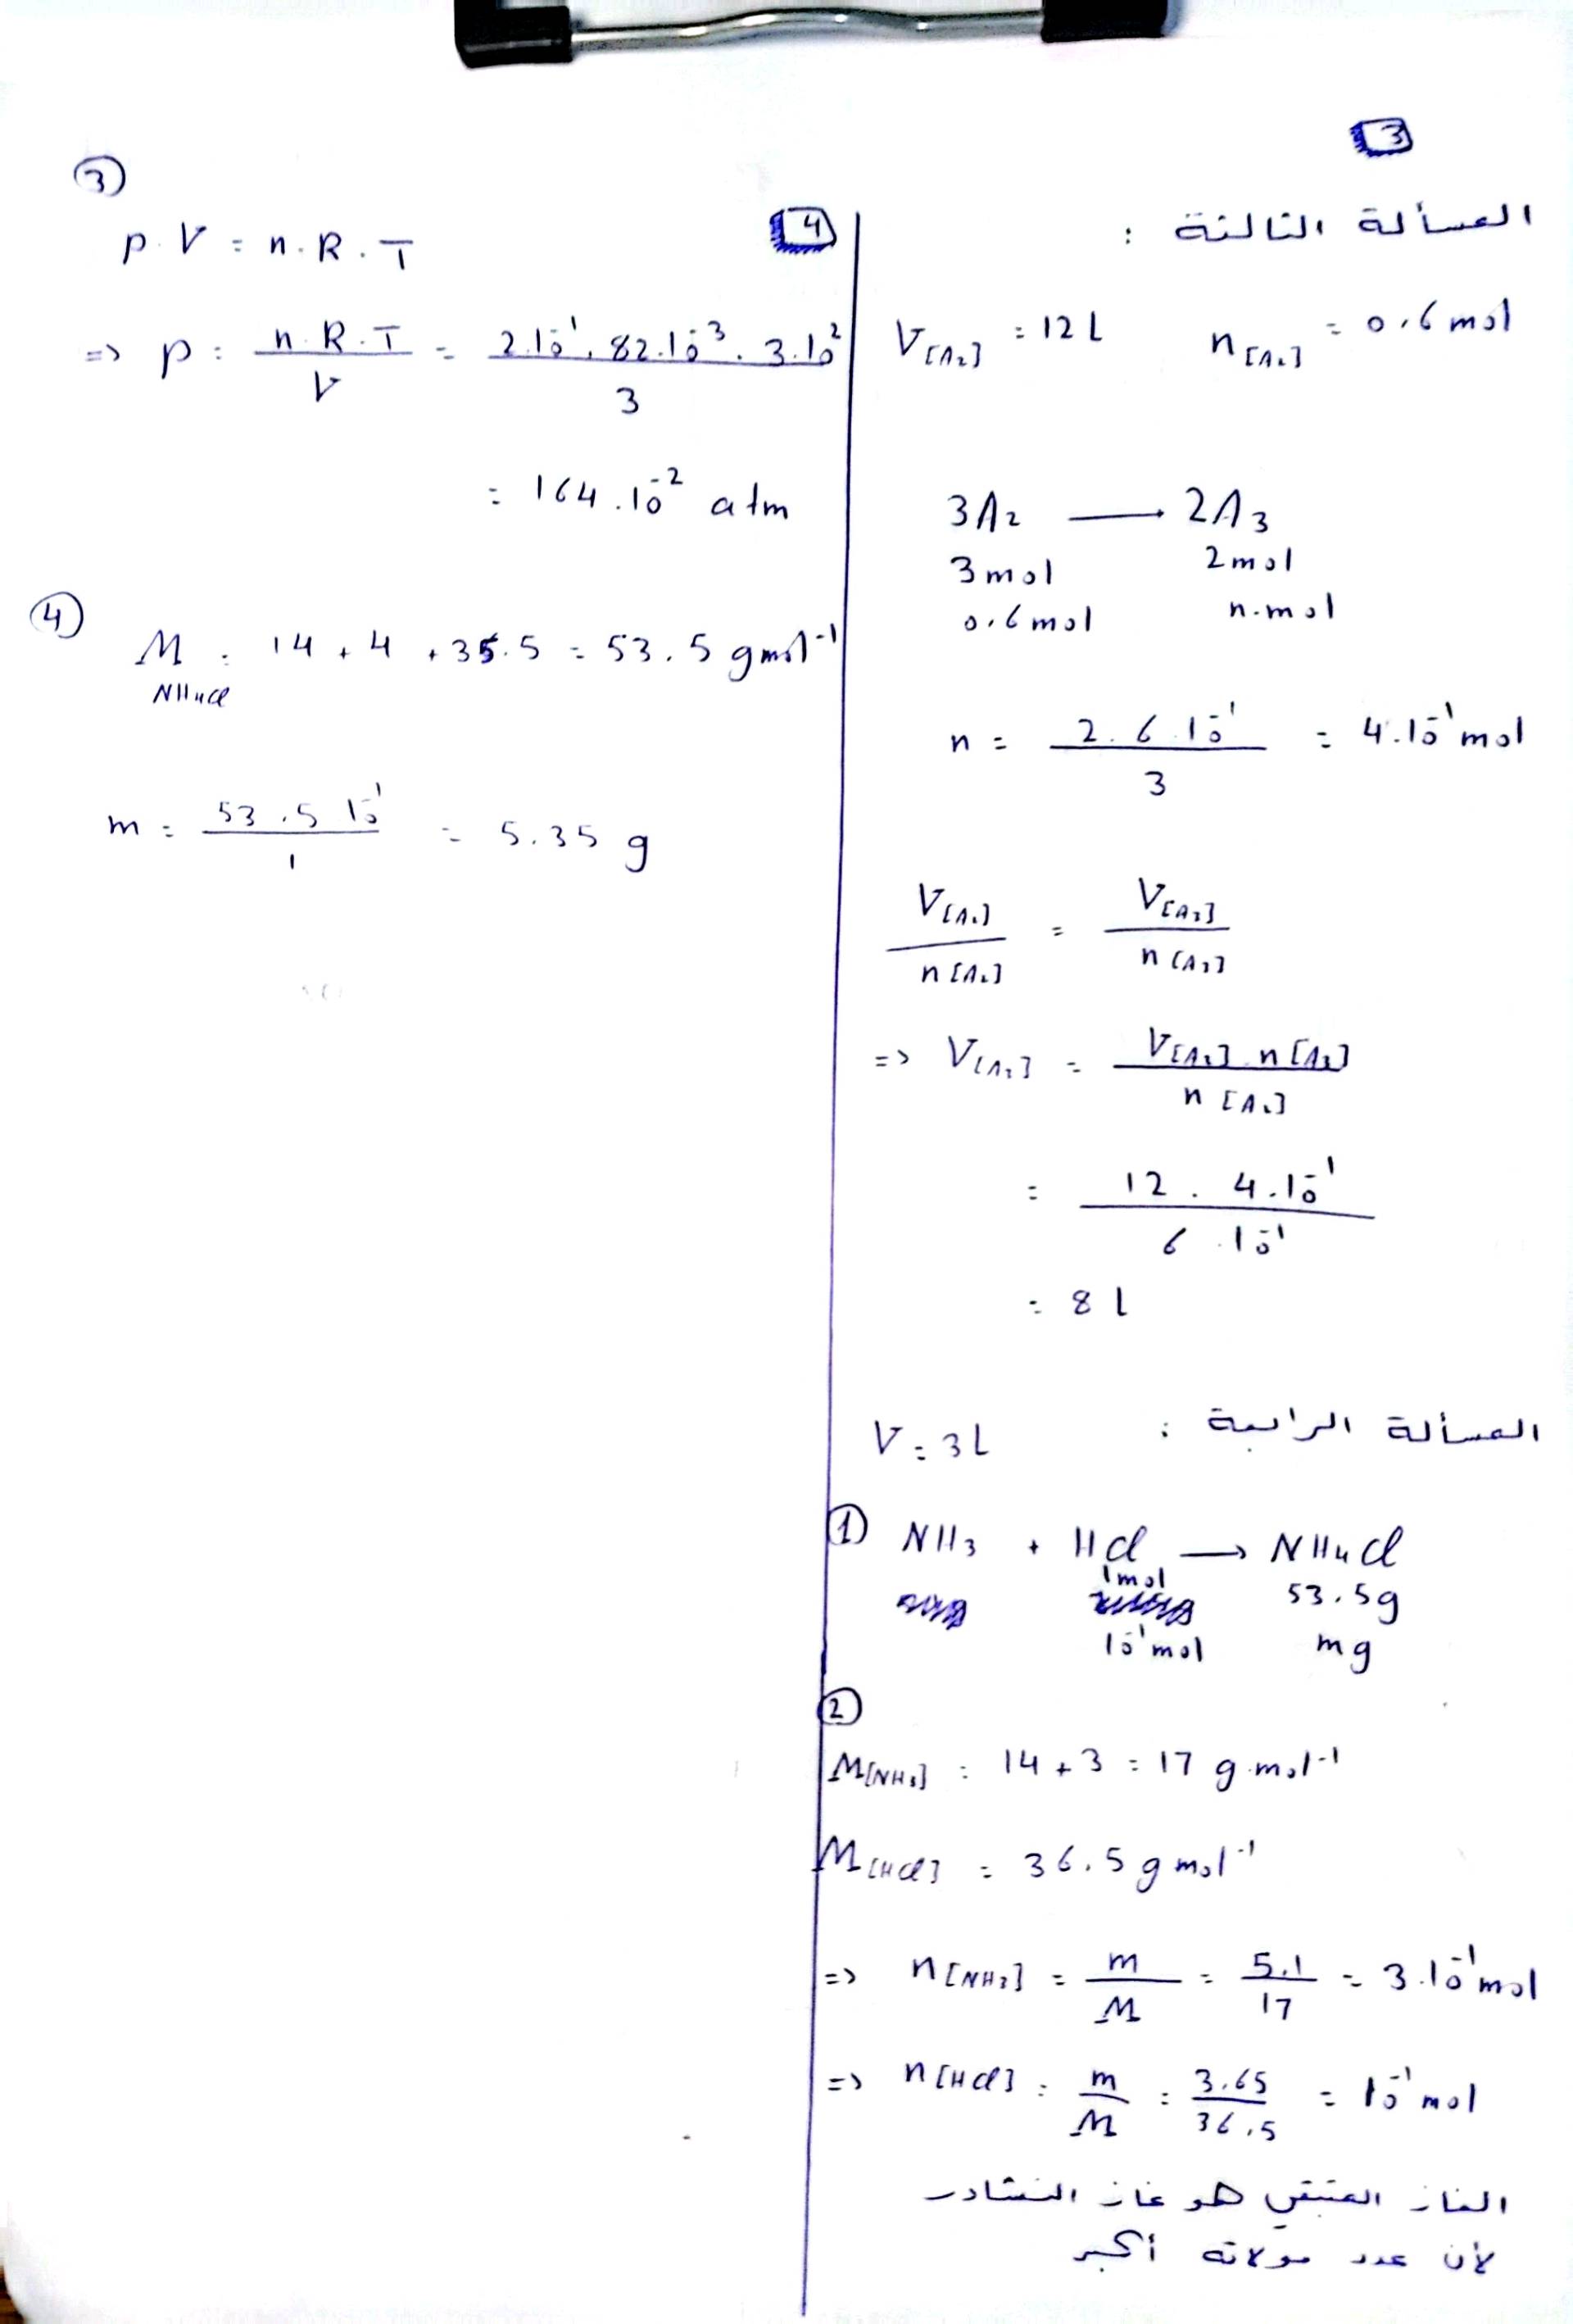 3
المسألة الثالثة :
V[A₂] = 12 L n[A₂] = 0.6 mol
3A₂ → 2A₃
3 mol 2 mol
0.6 mol n.mol
n = 2.6.10⁻¹ / 3 = 4.10⁻¹ mol
V[A₂] / n[A₂] = V[A₃] / n[A₃]
=> V[A₃] = V[A₂] . n[A₃] / n[A₂]
= 12 . 4.10⁻¹ / 6.10⁻¹
= 8 L
المسألة الرابعة :
V = 3 L
① NH₃ + HCl → NH₄Cl
1 mol 53.5 g
10⁻¹ mol m g
②
M[NH₃] = 14 + 3 = 17 g.mol⁻¹
M[HCl] = 36.5 g mol⁻¹
=> n[NH₃] = m / M = 5.1 / 17 = 3.10⁻¹ mol
=> n[HCl] = m / M = 3.65 / 36.5 = 10⁻¹ mol
الغاز المتبقي هو غاز النشادر
لأن عدد مولاته أكبر
4
③
P.V = n.R.T
=> P = n.R.T / V = 2.10⁻¹ . 82.10⁻³ . 3.10² / 3
= 164.10⁻² atm
④
M NH₄Cl = 14 + 4 + 35.5 = 53.5 g mol⁻¹
m = 53.5 10⁻¹ / 1 = 5.35 g